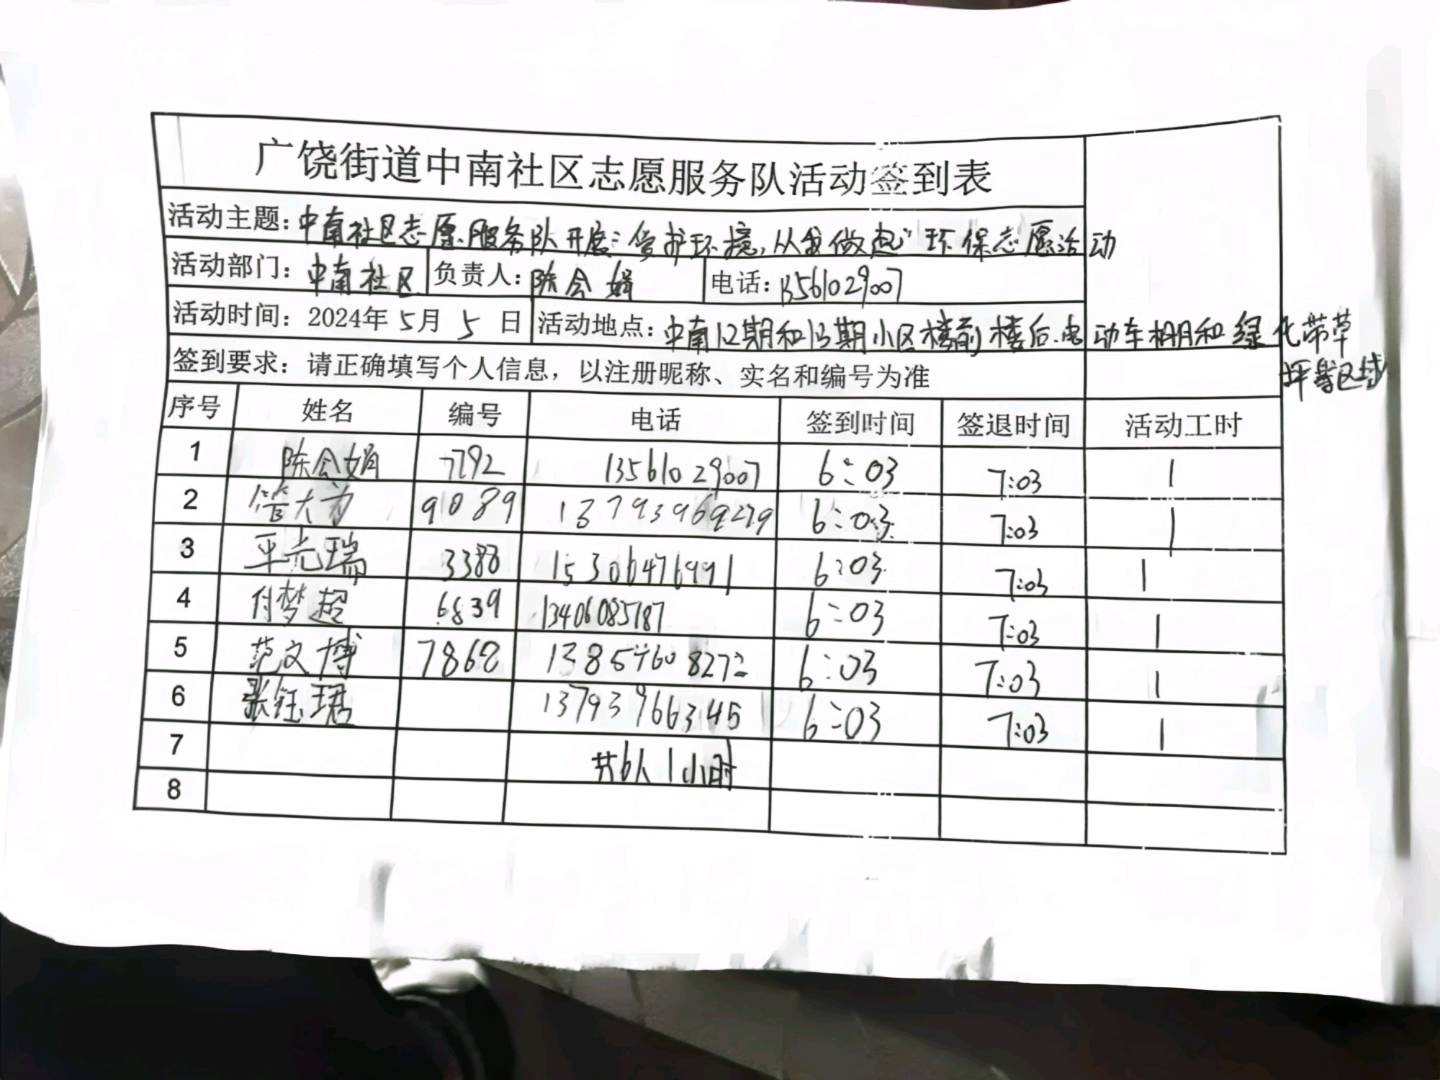 广饶街道中南社区志愿服务队活动签到表
活动主题: 中南社区志愿服务队开展: 爱护环境,从我做起" 环保志愿活动
活动部门: 中南社区 负责人: 陈会娟 电话: 13561029007
活动时间: 2024年 5月 5 日 活动地点: 中南12期和13期小区楼前楼后.电动车棚和绿化带草
坪等区域
签到要求: 请正确填写个人信息, 以注册昵称、实名和编号为准
序号 姓名 编号 电话 签到时间 签退时间 活动工时
1 陈会娟 7792 13561029007 6:03 7:03 1
2 管大为 9089 13793969279 6:03 7:03 1
3 平元瑞 3388 15306476991 6:03 7:03 1
4 付梦超 6839 13406085187 6:03 7:03 1
5 范文博 7868 13854608272 6:03 7:03 1
6 张钰珺 13793966345 6:03 7:03 1
7 共6人 1小时
8